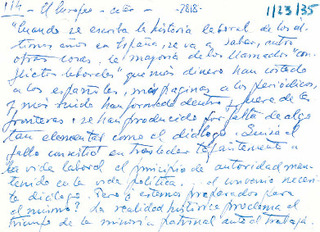 114 - El Europeo - 7818 - 1/23/35
"Cuando se escriba la historia laboral de los úl-
timos años en España, se va a saber, entre
otras cosas, la mayoría de los llamados "con-
flictos laborales" que más dinero han costado
a los españoles, más páginas a los periódicos,
y más ruido han formado dentro y fuera de las
fronteras, se han producido por falta de algo
tan elemental como el diálogo. Quizá el
fallo consistió en trasladar tajantemente a
la vida laboral el principio de autoridad man-
tenido en la vida política, y el convenio necesi-
ta diálogo. Pero ¿estamos preparados para
el mismo? La realidad histórica proclama el
triunfo de la minoría patronal ante el trabajo.